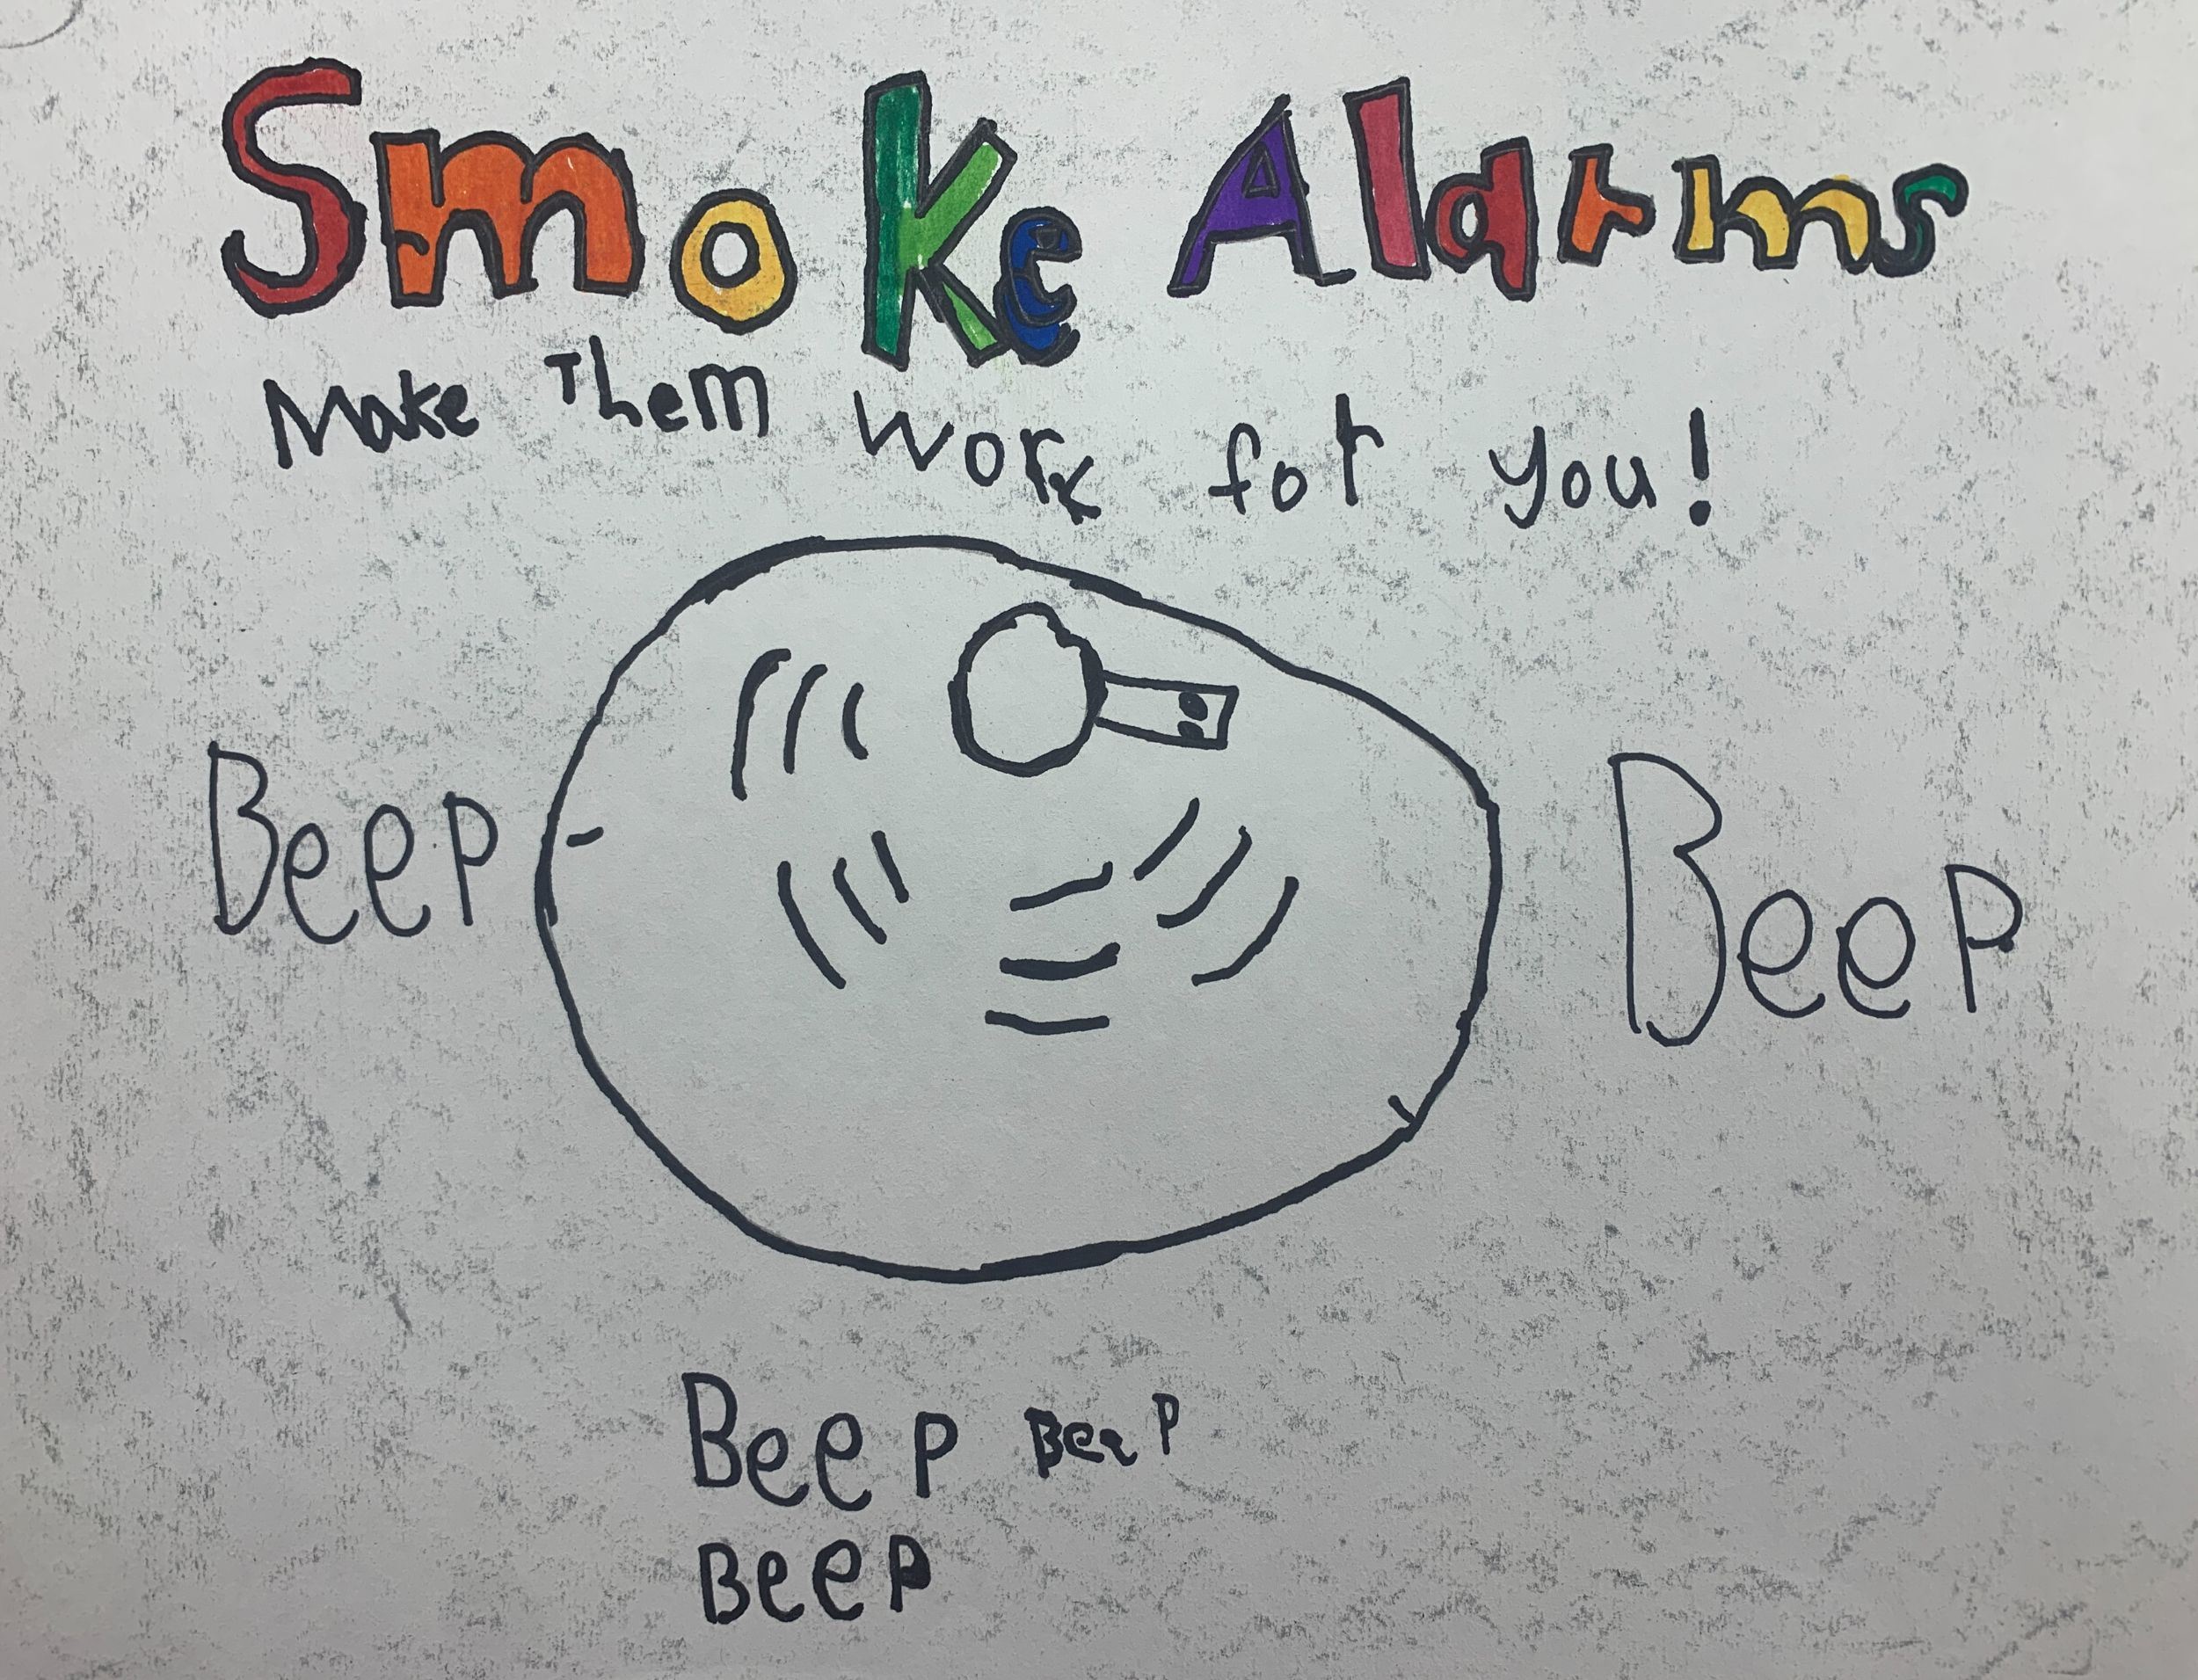 Smoke Alarms
Make Them work for you!
Beep
Beep
Beep Beep
Beep